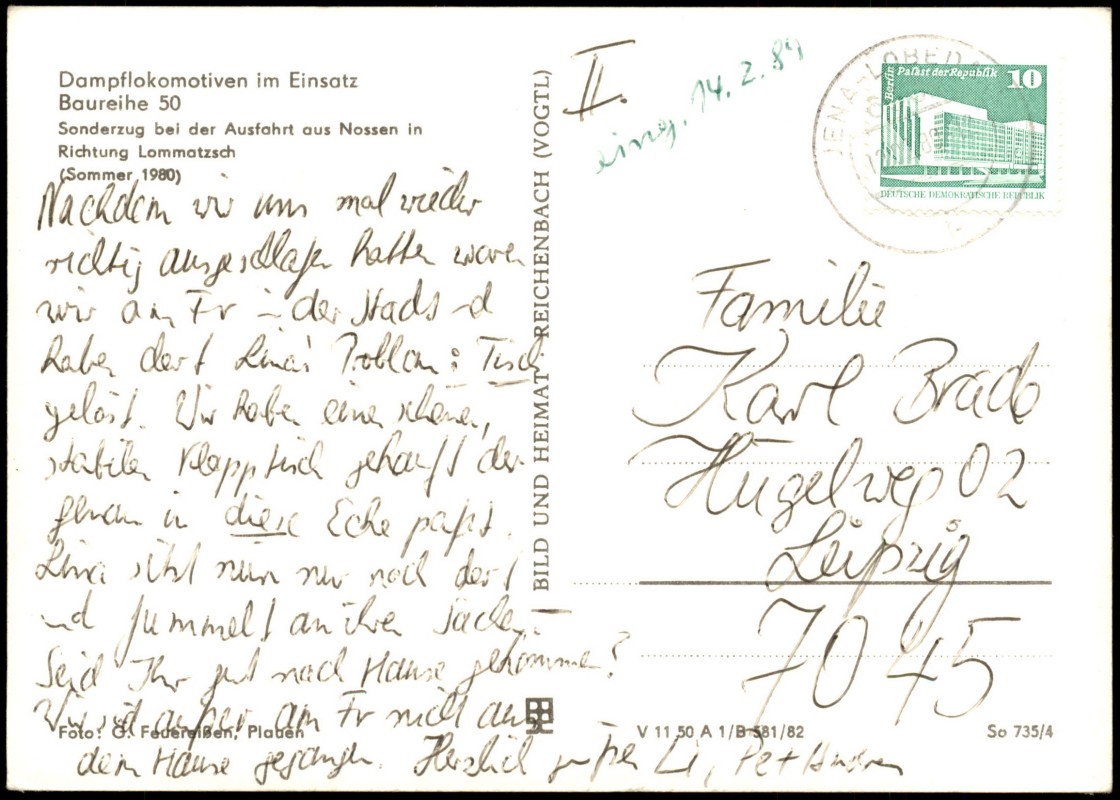 Dampflokomotiven im Einsatz
Baureihe 50
Sonderzug bei der Ausfahrt aus Nossen in
Richtung Lommatzsch
(Sommer 1980)
Nachdem wir uns mal wieder
richtig ausgeschlafen hatten waren
wir am Fr in der Stadt und
haben dort Lina's Problem: Tisch
gelöst. Wir haben einen schönen,
stabilen Klapptisch gekauft der
genau in diese Ecke paßt.
Lina sitzt nun nur noch dort
und fummelt an ihren Sachen.
Seid Ihr gut nach Hause gekommen?
Wir sind außer am Fr nicht aus
dem Hause gegangen. Herzlich grüßen Li, Pet
Foto: G. Feuereißen, Plauen
BILD UND HEIMAT REICHENBACH (VOGTL)
II.
eing. 14.2.89
JENA-LOBEDA
Berlin Palast der Republik 10
DEUTSCHE DEMOKRATISCHE REPUBLIK
Familie
Karl Brade
Hügelweg 02
Leipzig
7045
V 11 50 A 1/B 581/82
So 735/4